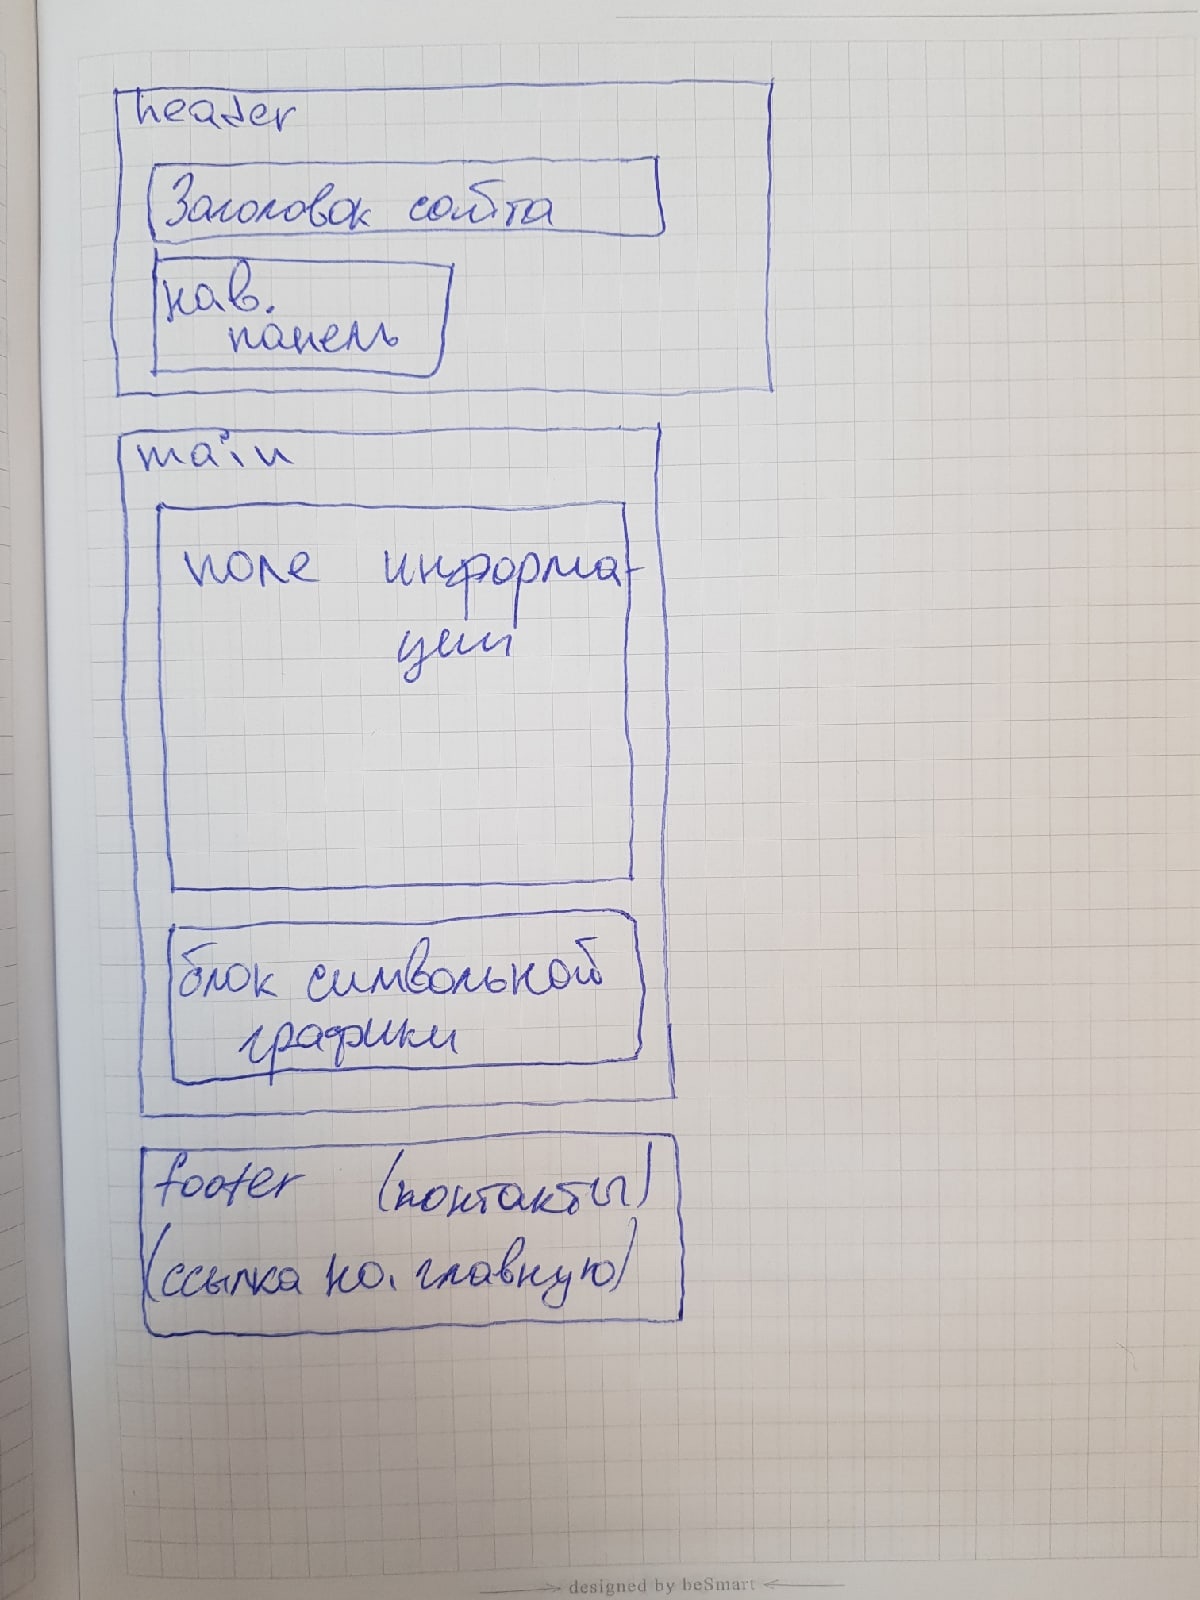 header
Заголовок сайта
нав.
панель
main
поле информа-
ции
блок символьной
графики
footer (контакты)
(ссылка на главную)
designed by beSmart